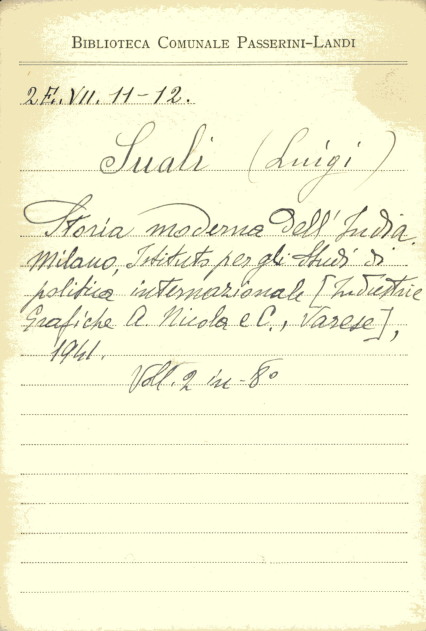 BIBLIOTECA COMUNALE PASSERINI-LANDI
2E.VII. 11-12.
Suali (Luigi)
Storia moderna dell'India.
Milano, Istituto per gli Studi di
politica internazionale [Industrie
Grafiche A. Nicola e C., Varese],
1941.
Voll. 2 in-8°